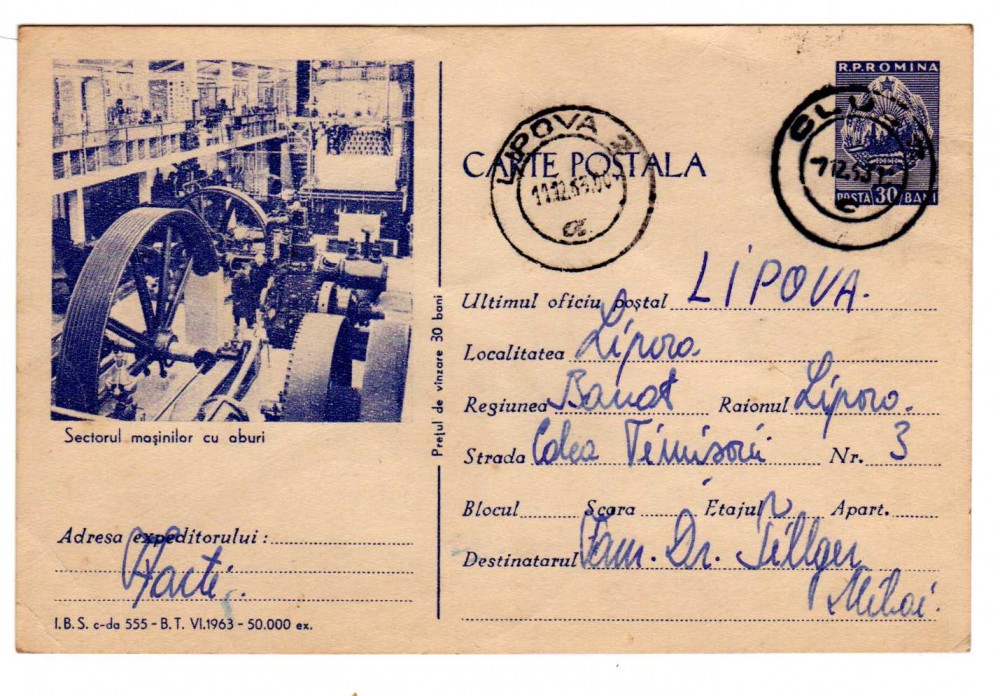 R.P.ROMINA
CLUJ
7.12.63
POSTA 30 BANI
LIPOVA
11.12.63.00
CARTE POSTALA
Ultimul oficiu poștal LIPOVA.
Localitatea Lipova
Regiunea Banat Raionul Lipova.
Strada Calea Timisorii Nr. 3
Blocul Scara Etajul Apart.
Destinatarul Fam. Dr. Tillger
Mihai.
Prețul de vînzare 30 bani
Sectorul mașinilor cu aburi
Adresa expeditorului:
I.B.S. c-da 555 - B.T. VI.1963 - 50.000 ex.